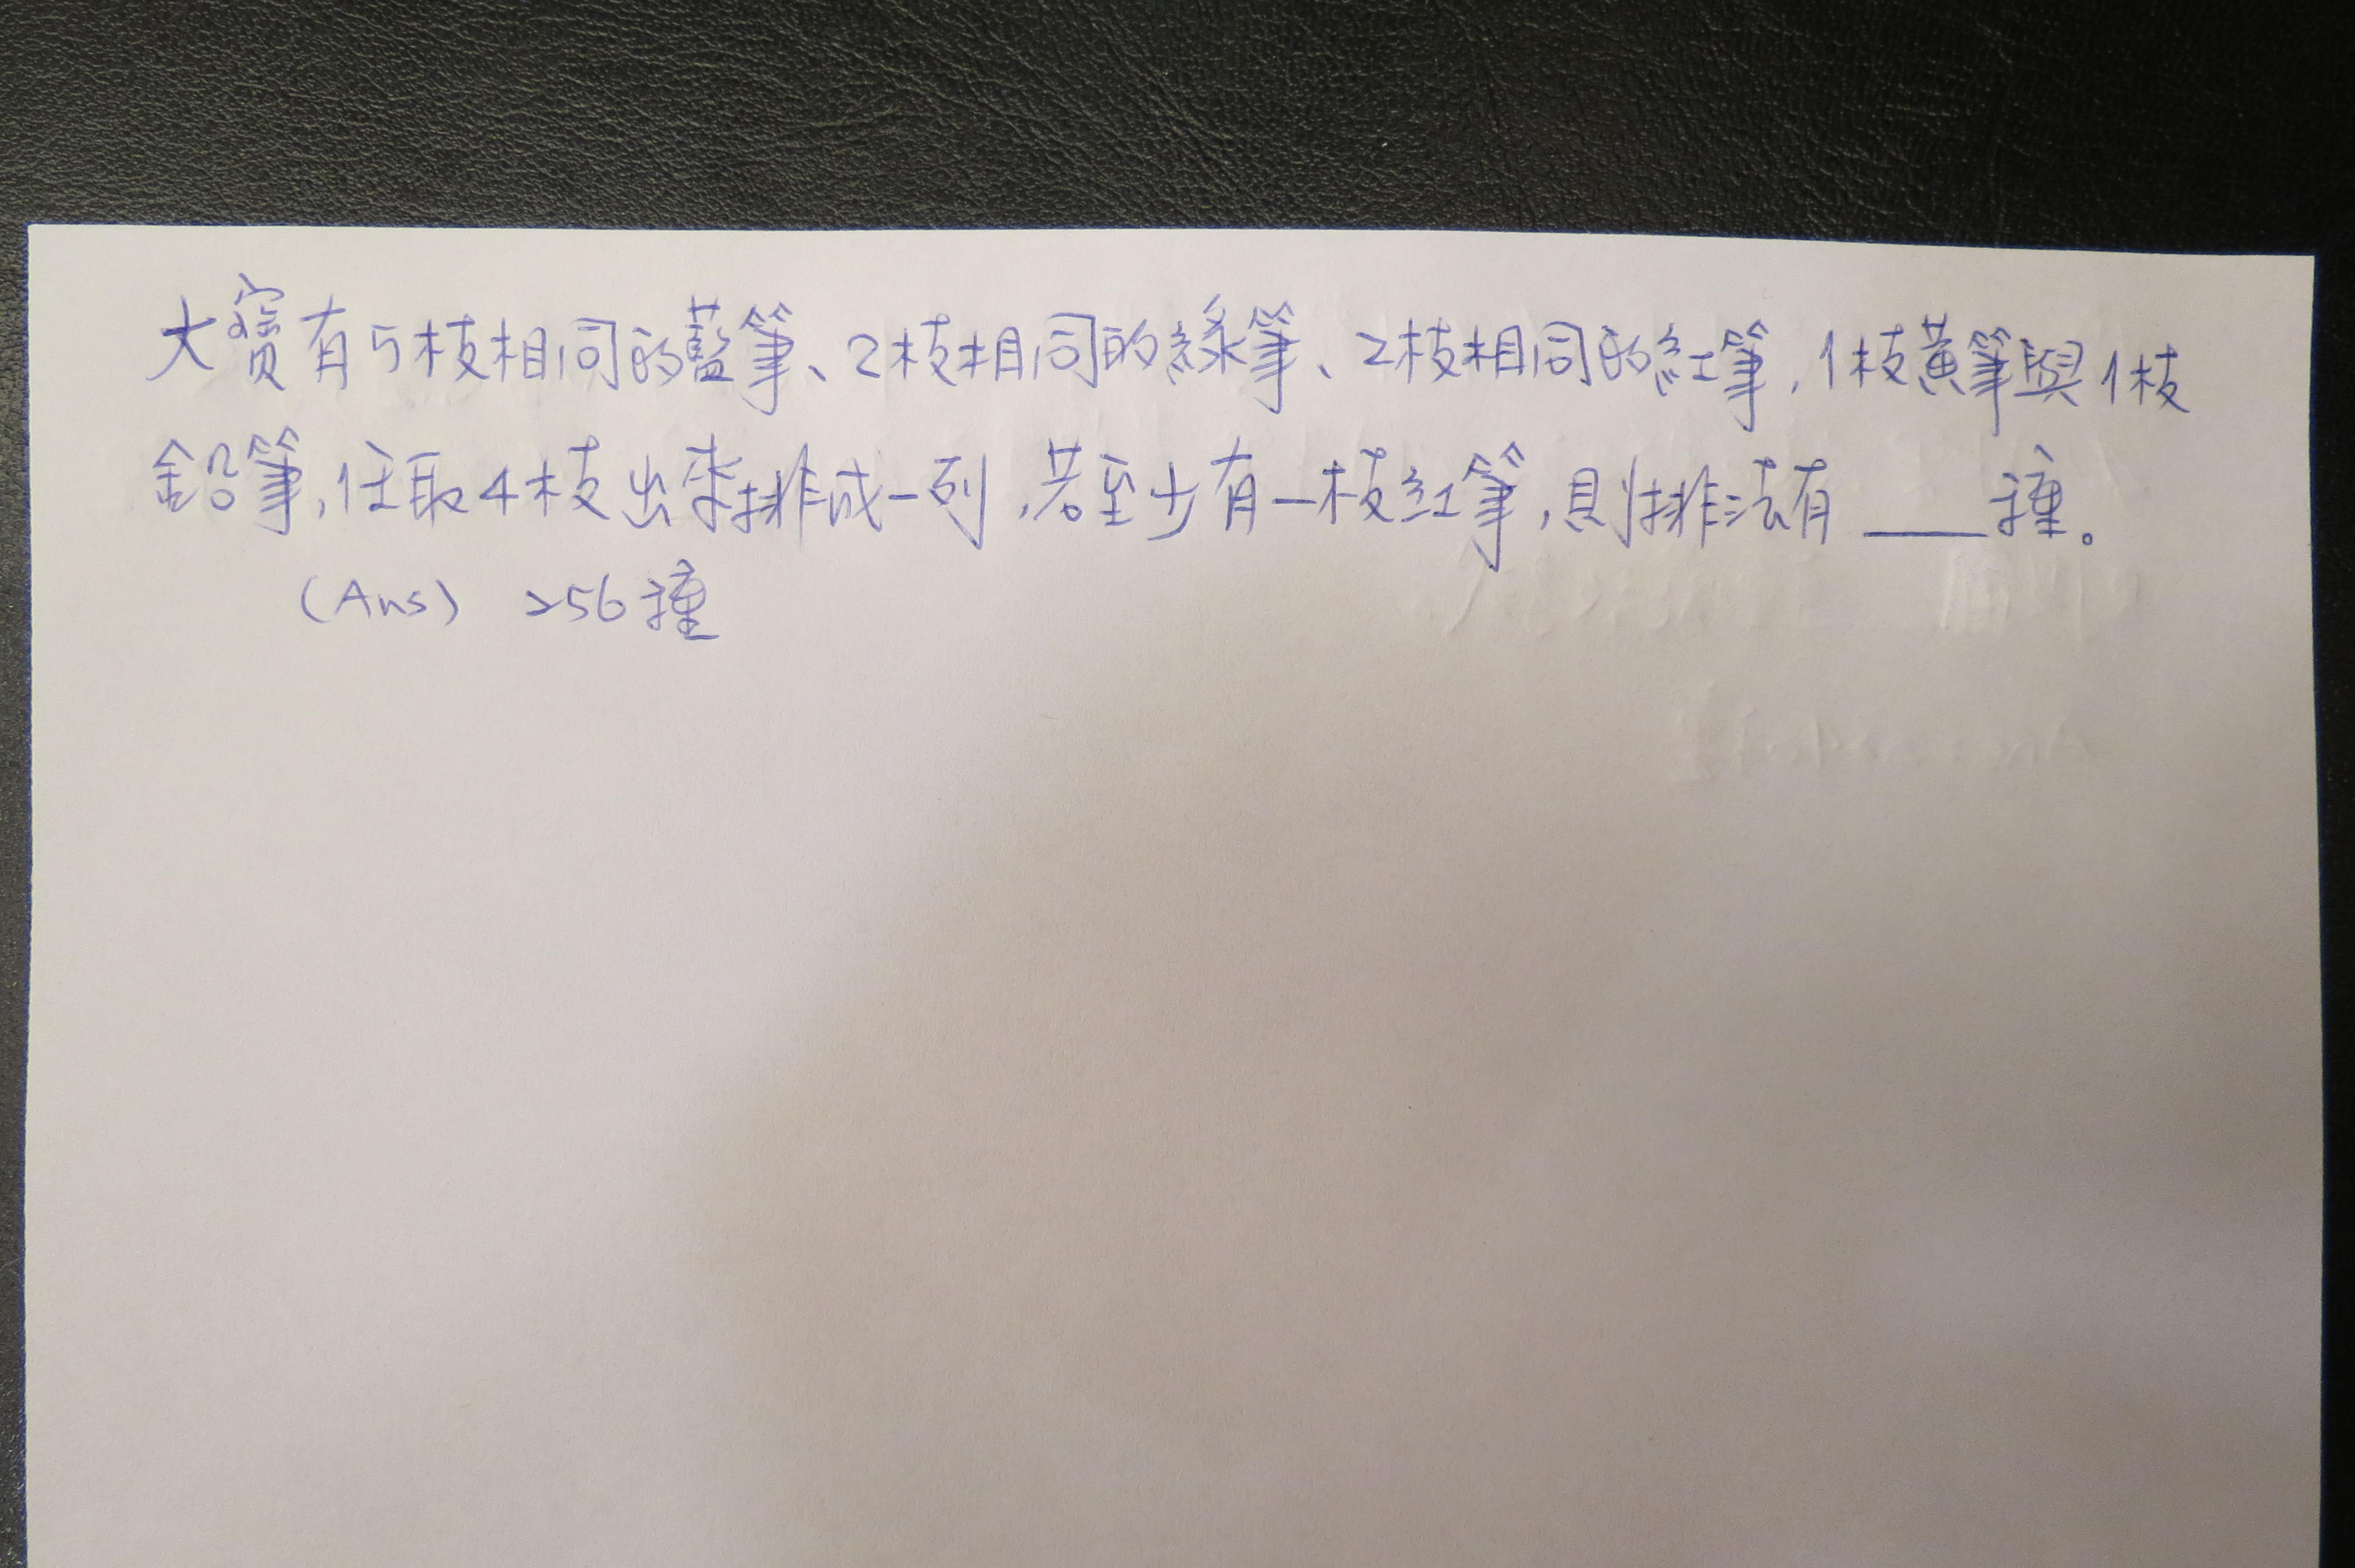 大寶有5枝相同的藍筆、2枝相同的綠筆、2枝相同的紅筆,1枝黃筆與1枝
鉛筆,任取4枝出來排成一列,若至少有一枝紅筆,則排法有 ___ 種。
(Ans) 256種